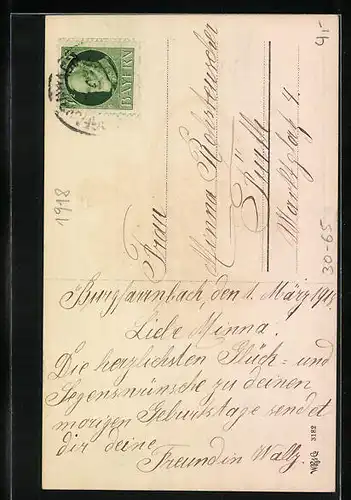 BAYERN
Frau
Minna
Fürth
Marktplatz 4.
Burgfarrnbach, den 1. März 1918
Liebe Minna.
Die herzlichsten Glück- und
Segenswünsche zu deinen
morigen Geburtstage sendet
dir deine
Freundin Wally.
1918
4,-
30-65
3182